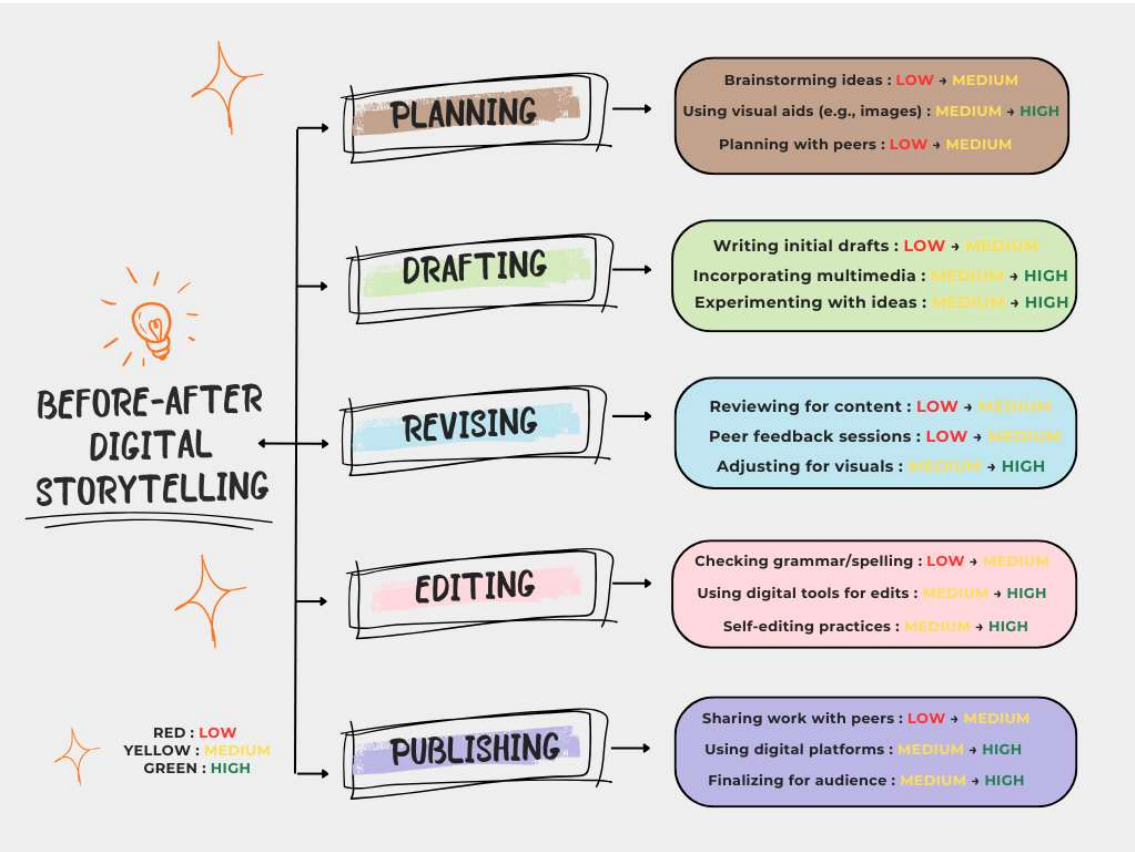 BEFORE-AFTER
DIGITAL
STORYTELLING
PLANNING
Brainstorming ideas : LOW → MEDIUM
Using visual aids (e.g., images) : MEDIUM → HIGH
Planning with peers : LOW → MEDIUM
DRAFTING
Writing initial drafts : LOW → MEDIUM
Incorporating multimedia : MEDIUM → HIGH
Experimenting with ideas : MEDIUM → HIGH
REVISING
Reviewing for content : LOW → MEDIUM
Peer feedback sessions : LOW → MEDIUM
Adjusting for visuals : MEDIUM → HIGH
EDITING
Checking grammar/spelling : LOW → MEDIUM
Using digital tools for edits : MEDIUM → HIGH
Self-editing practices : MEDIUM → HIGH
PUBLISHING
Sharing work with peers : LOW → MEDIUM
Using digital platforms : MEDIUM → HIGH
Finalizing for audience : MEDIUM → HIGH
RED : LOW
YELLOW : MEDIUM
GREEN : HIGH